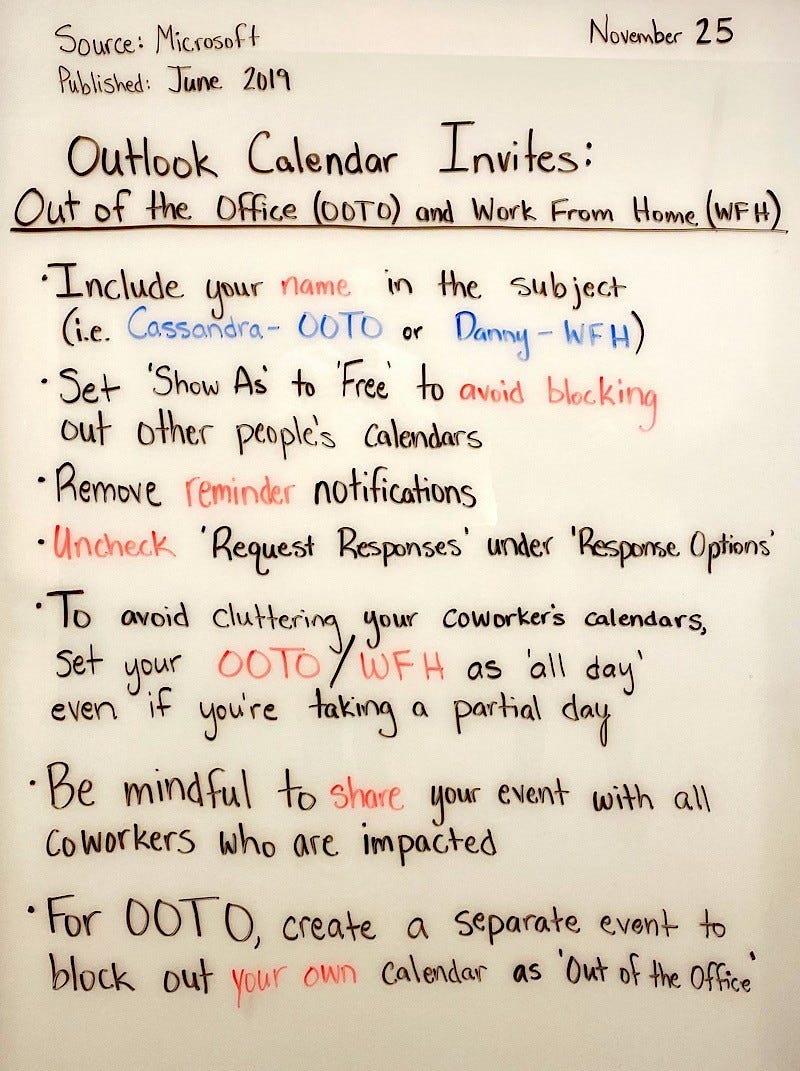 Source: Microsoft
November 25
Published: June 2019
Outlook Calendar Invites:
Out of the Office (OOTO) and Work From Home (WFH)
· Include your name in the subject
(i.e. Cassandra - OOTO or Danny - WFH)
· Set 'Show As' to 'Free' to avoid blocking
out other people's calendars
· Remove reminder notifications
· Uncheck 'Request Responses' under 'Response Options'
· To avoid cluttering your coworker's calendars,
set your OOTO/WFH as 'all day'
even if you're taking a partial day
· Be mindful to share your event with all
coworkers who are impacted
· For OOTO, create a separate event to
block out your own calendar as 'Out of the Office'